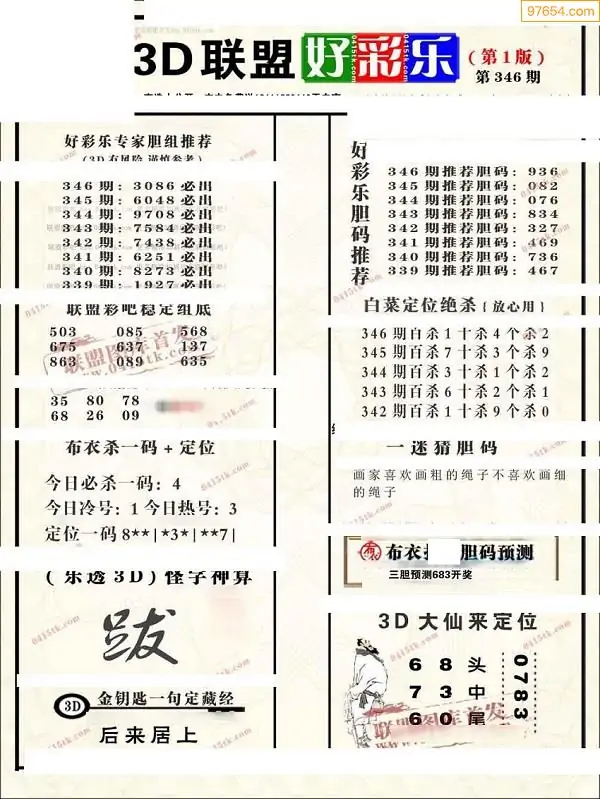 97654.com
3D联盟好彩乐
(第1版)
第346期
好彩乐专家胆组推荐
(3D有风险 谨慎参考)
346期: 3086 必出
345期: 6048 必出
344期: 9708 必出
343期: 7584 必出
342期: 7438 必出
341期: 6251 必出
340期: 8273 必出
339期: 1927 必出
联盟彩吧稳定组底
503 085 568
675 637 137
863 089 635
35 80 78
68 26 09
布衣杀一码+定位
今日必杀一码: 4
今日冷号: 1 今日热号: 3
定位一码 8**|*3*|**7|
(乐透3D)怪字神算
跋
3D 金钥匙一句定藏经
后来居上
好彩乐胆码推荐
346期推荐胆码: 936
345期推荐胆码: 082
344期推荐胆码: 076
343期推荐胆码: 834
342期推荐胆码: 327
341期推荐胆码: 469
340期推荐胆码: 736
339期推荐胆码: 467
白菜定位绝杀{放心用}
346期百杀1十杀4个杀2
345期百杀7十杀3个杀9
344期百杀3十杀1个杀2
343期百杀6十杀2个杀1
342期百杀1十杀9个杀0
一迷猜胆码
画家喜欢画粗的绳子不喜欢画细
的绳子
布衣 胆码预测
三胆预测683开奖
3D大仙来定位
6 8 头
7 3 中
6 0 尾
0783
联盟图库首发
www.0415tk.com